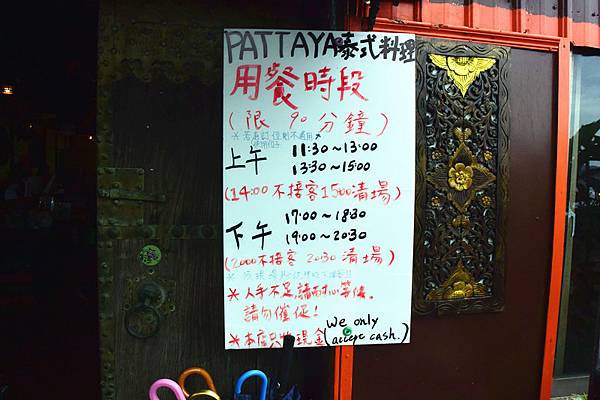 PATTAYA泰式料理
用餐時段
(限 90分鐘)
上午 11:30~13:00
13:30~15:00
(14:00不接客1500清場)
下午 17:00~18:30
19:00~20:30
(2000不接客 2030清場)
※人手不足,請耐心等候。
請勿催促!
※本店只收現金(We only accept cash.)